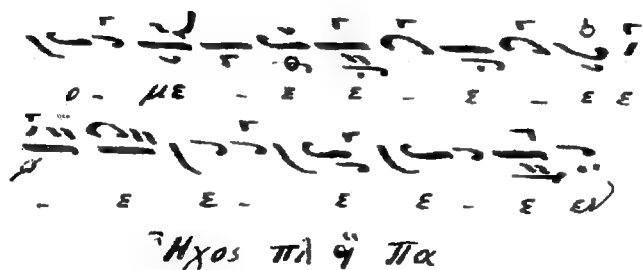 ο - με - ε ε - ε - ε ε
- ε ε - ε ε - ε εν
Ἦχος πλ q̈ Πα